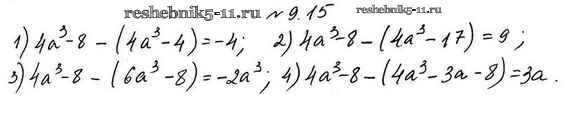 reshebnik5-11.ru № 9.15 reshebnik5-11.ru
1) 4a³-8 - (4a³-4) = -4; 2) 4a³-8 - (4a³-17) = 9;
3) 4a³-8 - (6a³-8) = -2a³; 4) 4a³-8 - (4a³-3a-8) = 3a.